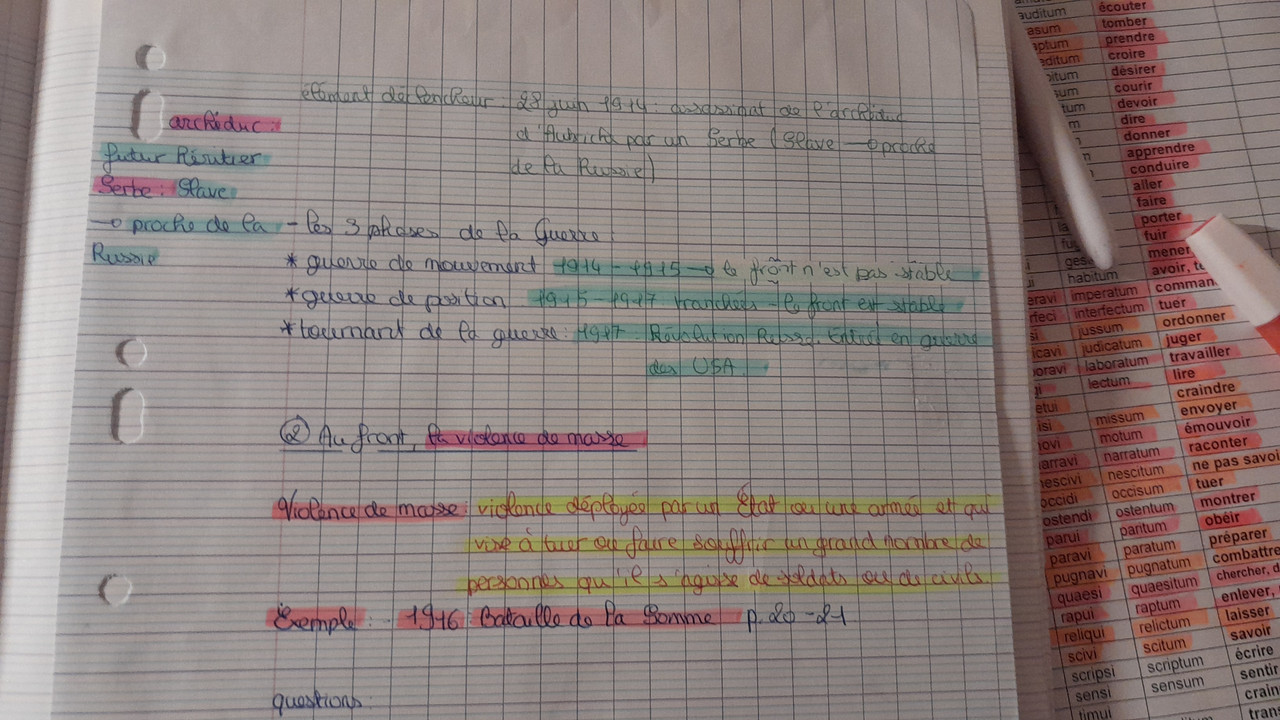 élément déclencheur : 28 juin 1914 : assassinat de l'archiduc
d'Autriche par un Serbe (Slave → proche
de la Russie)
archiduc :
futur héritier
Serbe : Slave
→ proche de la
Russie
- les 3 phases de la Guerre :
* guerre de mouvement 1914-1915 → le front n'est pas stable
* guerre de position 1915-1917 tranchées - le front est stable
* tournant de la guerre : 1917 Révolution Russe. Entrée en guerre
des USA.
② Au front, la violence de masse
Violence de masse : violence déployée par un État ou une armée et qui
vise à tuer ou faire souffrir un grand nombre de
personnes qu'il s'agisse de soldats ou de civils
Exemple : - 1916 : Bataille de la Somme p. 20-21
questions :
auditum écouter
asum tomber
aptum prendre
editum croire
désirer
courir
devoir
dire
donner
apprendre
conduire
aller
faire
porter
fuir
mener
habitum avoir, te
eravi imperatum comman
feci interfectum tuer
si jussum ordonner
icavi judicatum juger
oravi laboratum travailler
gi lectum lire
etui craindre
isi missum envoyer
ovi motum émouvoir
arravi narratum raconter
nescivi nescitum ne pas savoi
occidi occisum tuer
ostendi ostentum montrer
parui pantum obéir
paravi paratum préparer
pugnavi pugnatum combattre
quaesi quaesitum chercher, d
rapui raptum enlever,
reliqui relictum laisser
scivi scitum savoir
scripsi scriptum écrire
sensi sensum sentir
timui crain